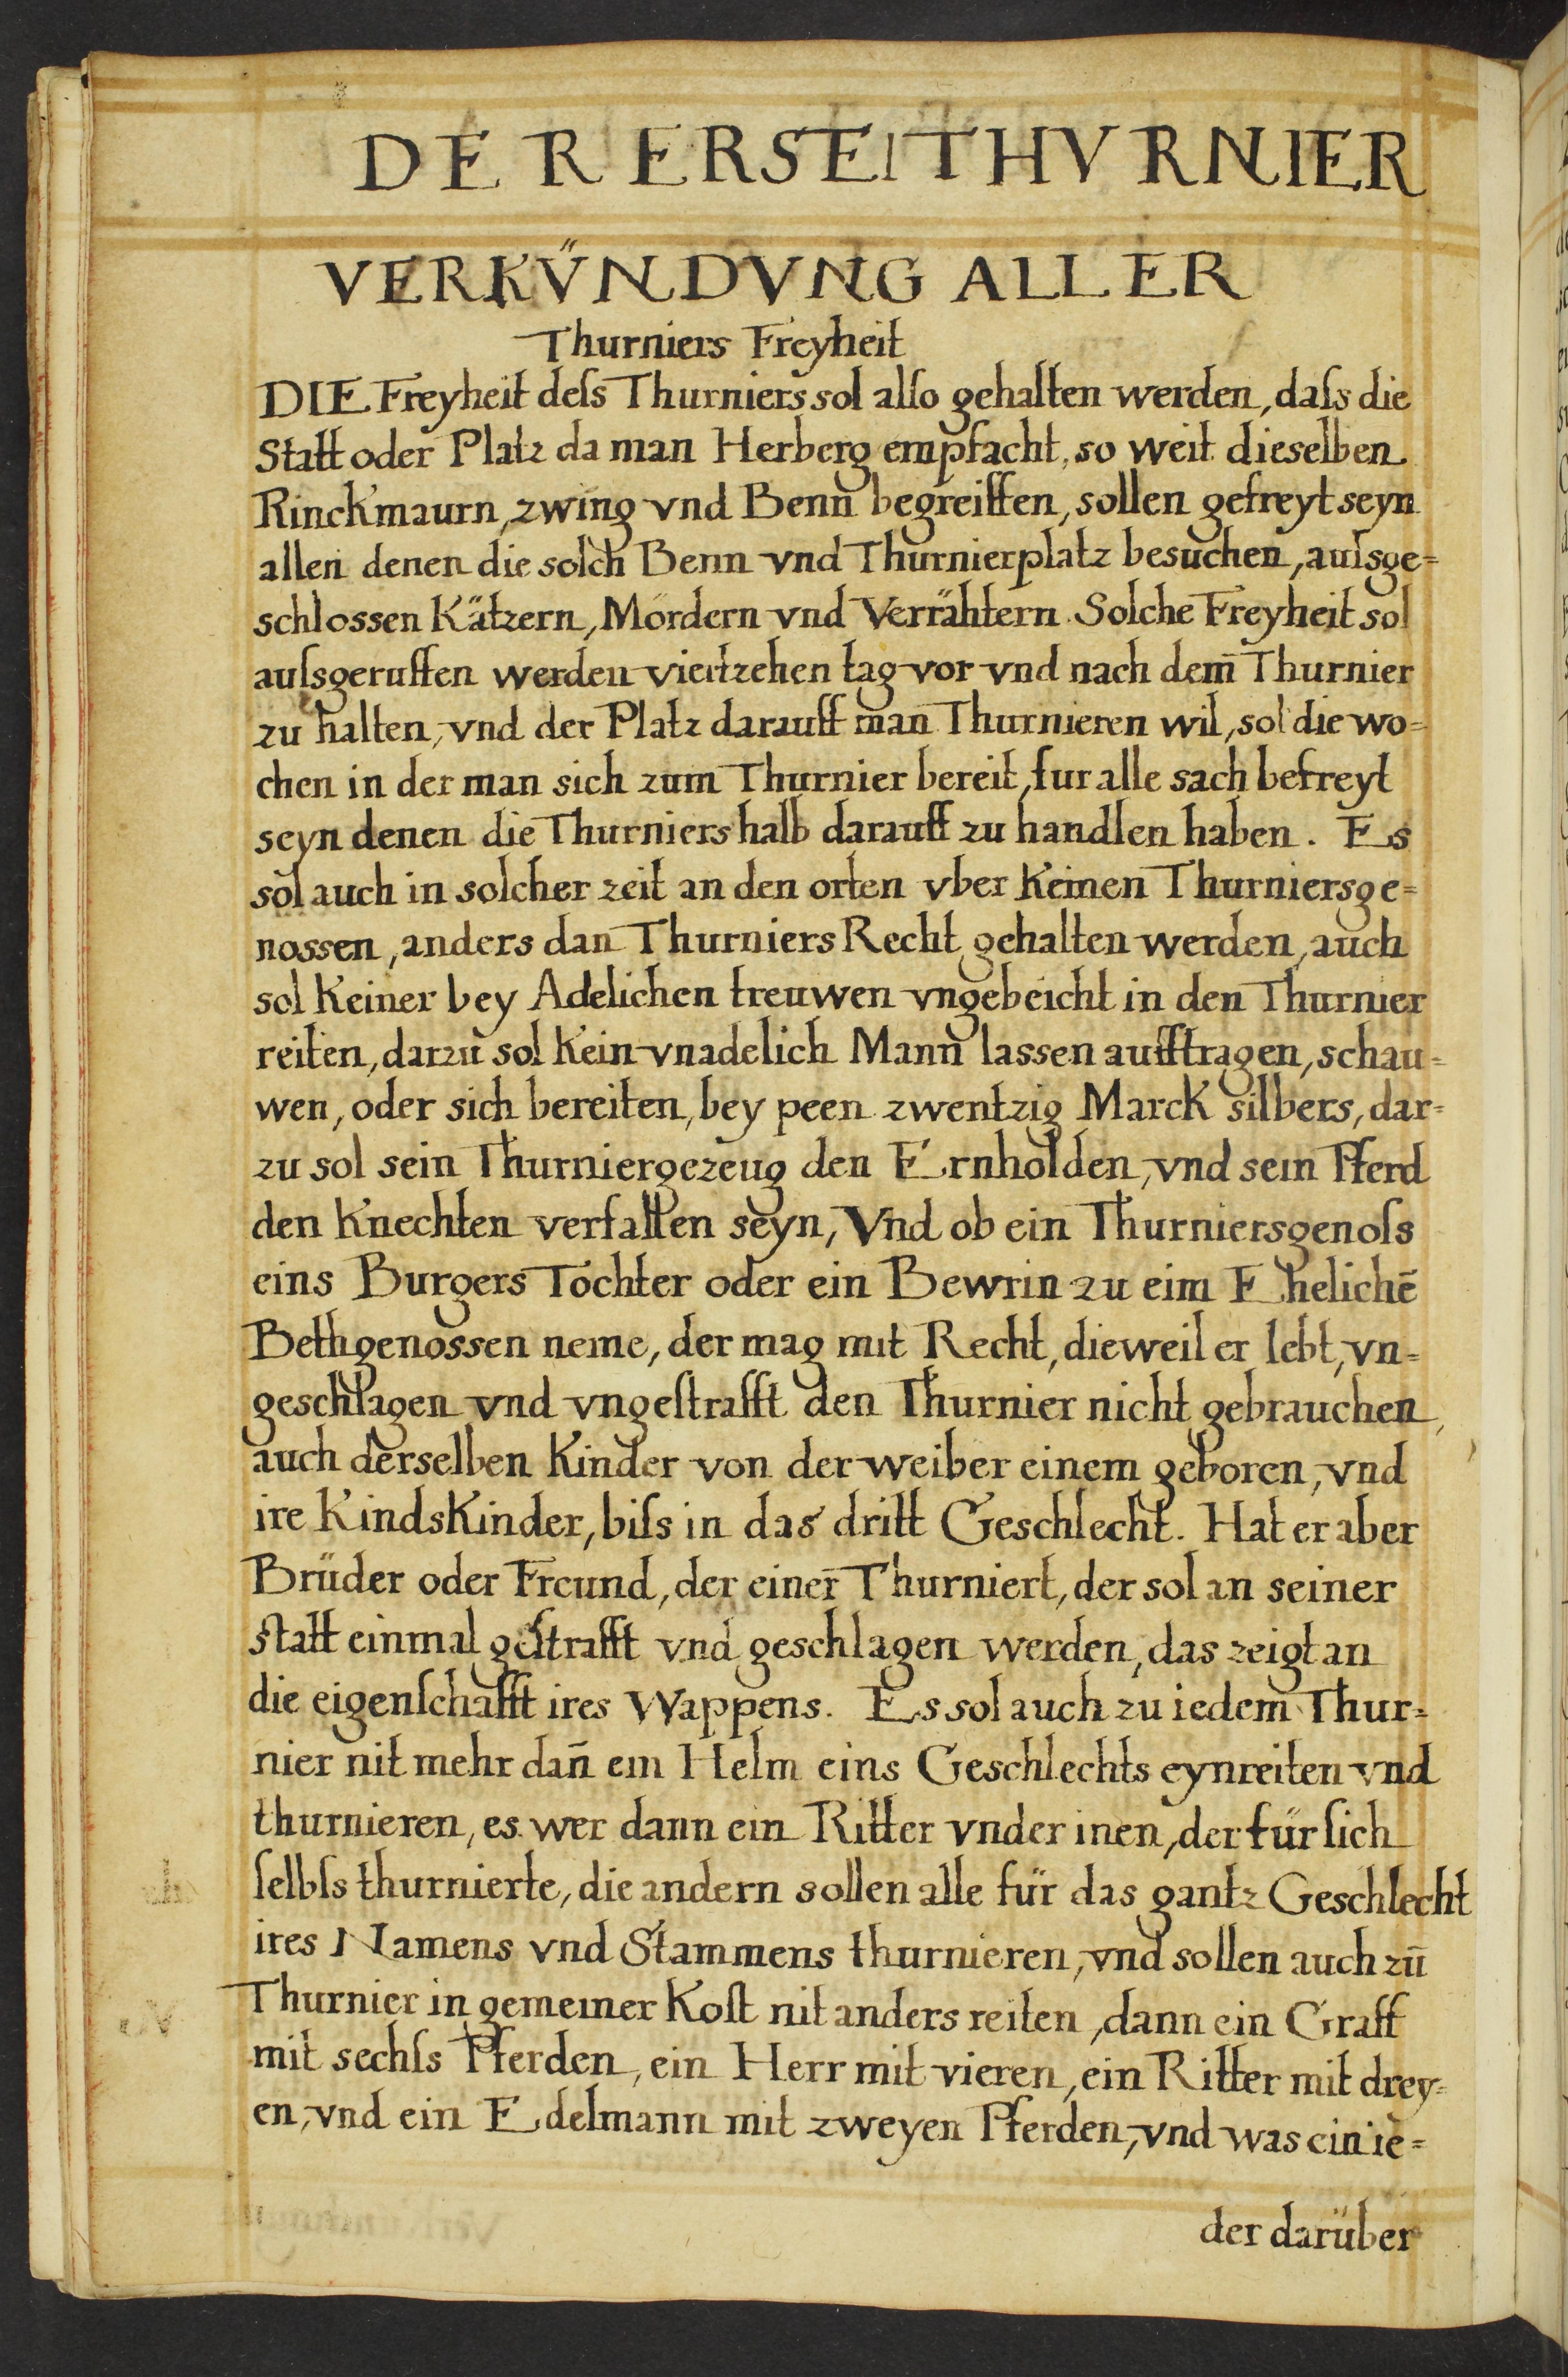 DER ERSE THVRNIER
VERKV̈NDVNG ALLER
Thurniers Freyheit
DIE Freyheit deſs Thurniers sol alſo gehalten werden, daſs die
Statt oder Platz da man Herberg empfacht, so weit dieselben
Rinckmaurn, zwing vnd Benn begreiffen, sollen gefreyt seyn
allen denen die solch Benn vnd Thurnierplatz besuchen, auſsge=
schlossen Kätzern, Mördern vnd Verrähtern. Solche Freyheit sol
auſsgeruffen werden viertzehen tag vor vnd nach dem Thurnier
zu halten, vnd der Platz darauff man Thurnieren wil, sol die wo=
chen in der man sich zum Thurnier bereit, fur alle sach befreyt
seyn denen die Thurniers halb darauff zu handlen haben. Es
sol auch in solcher zeit an den orten vber keinen Thurniersge=
nossen, anders dan Thurniers Recht gehalten werden, auch
sol keiner bey Adelichen treuwen vngebeicht in den Thurnier
reiten, darzu sol kein vnadelich Mann lassen aufftragen, schau=
wen, oder sich bereiten, bey peen zwentzig Marck silbers, dar=
zu sol sein Thurniergezeug den Ernholden, vnd sein Pferd
den Knechten verfallen seyn, Vnd ob ein Thurniersgenoſs
eins Burgers Tochter oder ein Bewrin zu eim Ehelichē
Bethgenossen neme, der mag mit Recht, dieweil er lebt, vn=
geschlagen vnd vngeſtrafft den Thurnier nicht gebrauchen,
auch derselben Kinder von der weiber einem geboren, vnd
ire Kindskinder, biſs in das dritt Geschlecht. Hat er aber
Brüder oder Freund, der einer Thurniert, der sol an seiner
ſtatt einmal geſtrafft vnd geschlagen werden, das zeigt an
die eigenſchafft ires Wappens. Es sol auch zu iedem Thur=
nier nit mehr dan̄ ein Helm eins Geschlechts eynreiten vnd
thurnieren, es wer dann ein Ritter vnder inen, der für ſich
ſelbſs thurnierte, die andern sollen alle für das gantz Geschlecht
ires Namens vnd Stammens thurnieren, vnd sollen auch zū
Thurnier in gemeiner Koſt nit anders reiten, dann ein Graff
mit sechſs Pferden, ein Herr mit vieren, ein Ritter mit drey=
en, vnd ein Edelmann mit zweyen Pferden, vnd was ein ie=
der darüber